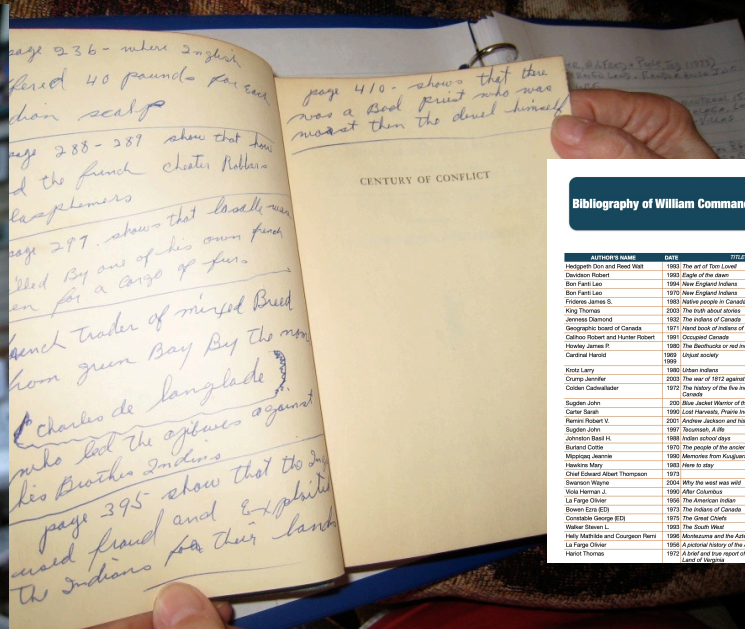 page 236 - where English
fered 40 pounds for Each
dian scalps
page 288 - 289 show that how
d the french cheater Robbers
lasphemers
page 297. shows that lasalle was
lled By one of his own french
en for a cargo of furs.
rench Trader of mixed Breed
rom green Bay By the nam
Charles de langlade
who led the ogibwes against
his Brother Indins
page 395 show that the Ing
used fraud and Exploited
the Indians for their land
page 410 - shows that there
was a Bad priest who was
worst then the devel himself
CENTURY OF CONFLICT
Bibliography of William Comman
AUTHOR'S NAME DATE TITLE
Hedgpeth Don and Reed Walt 1993 The art of Tom Lovell
Davidson Robert 1993 Eagle of the dawn
Bon Fanti Leo 1994 New England Indians
Bon Fanti Leo 1970 New England Indians
Frideres James S. 1983 Native people in Canada
King Thomas 2003 The truth about stories
Jenness Diamond 1932 The indians of Canada
Geographic board of Canada 1971 Hand book of indians of
Calihoo Robert and Hunter Robert 1991 Occupied Canada
Howley James P. 1980 The Beothucks or red in
Cardinal Harold 1969 Unjust society
1999
Krotz Larry 1980 Urban indians
Crump Jennifer 2003 The war of 1812 against
Colden Cadwallader 1972 The history of the five in
Canada
Sugden John 200 Blue Jacket Warrior of th
Carter Sarah 1990 Lost Harvests, Prairie In
Remini Robert V. 2001 Andrew Jackson and his
Sugden John 1997 Tecumseh, A life
Johnston Basil H. 1988 Indian school days
Burland Cottie 1970 The people of the ancien
Mippiqaq Jeannie 1990 Memories from Kuujjuar
Hawkins Mary 1983 Here to stay
Chief Edward Albert Thompson 1973
Swanson Wayne 2004 Why the west was wild
Viola Herman J. 1990 After Columbus
La Farge Olivier 1956 The American Indian
Bowen Ezra (ED) 1973 The Indians of Canada
Constable George (ED) 1975 The Great Chiefs
Walker Steven L. 1993 The South West
Helly Mathilde and Courgeon Remi 1996 Montezuma and the Azte
La Farge Olivier 1956 A pictorial history of the A
Hariot Thomas 1972 A brief and true report of
Land of Verginia